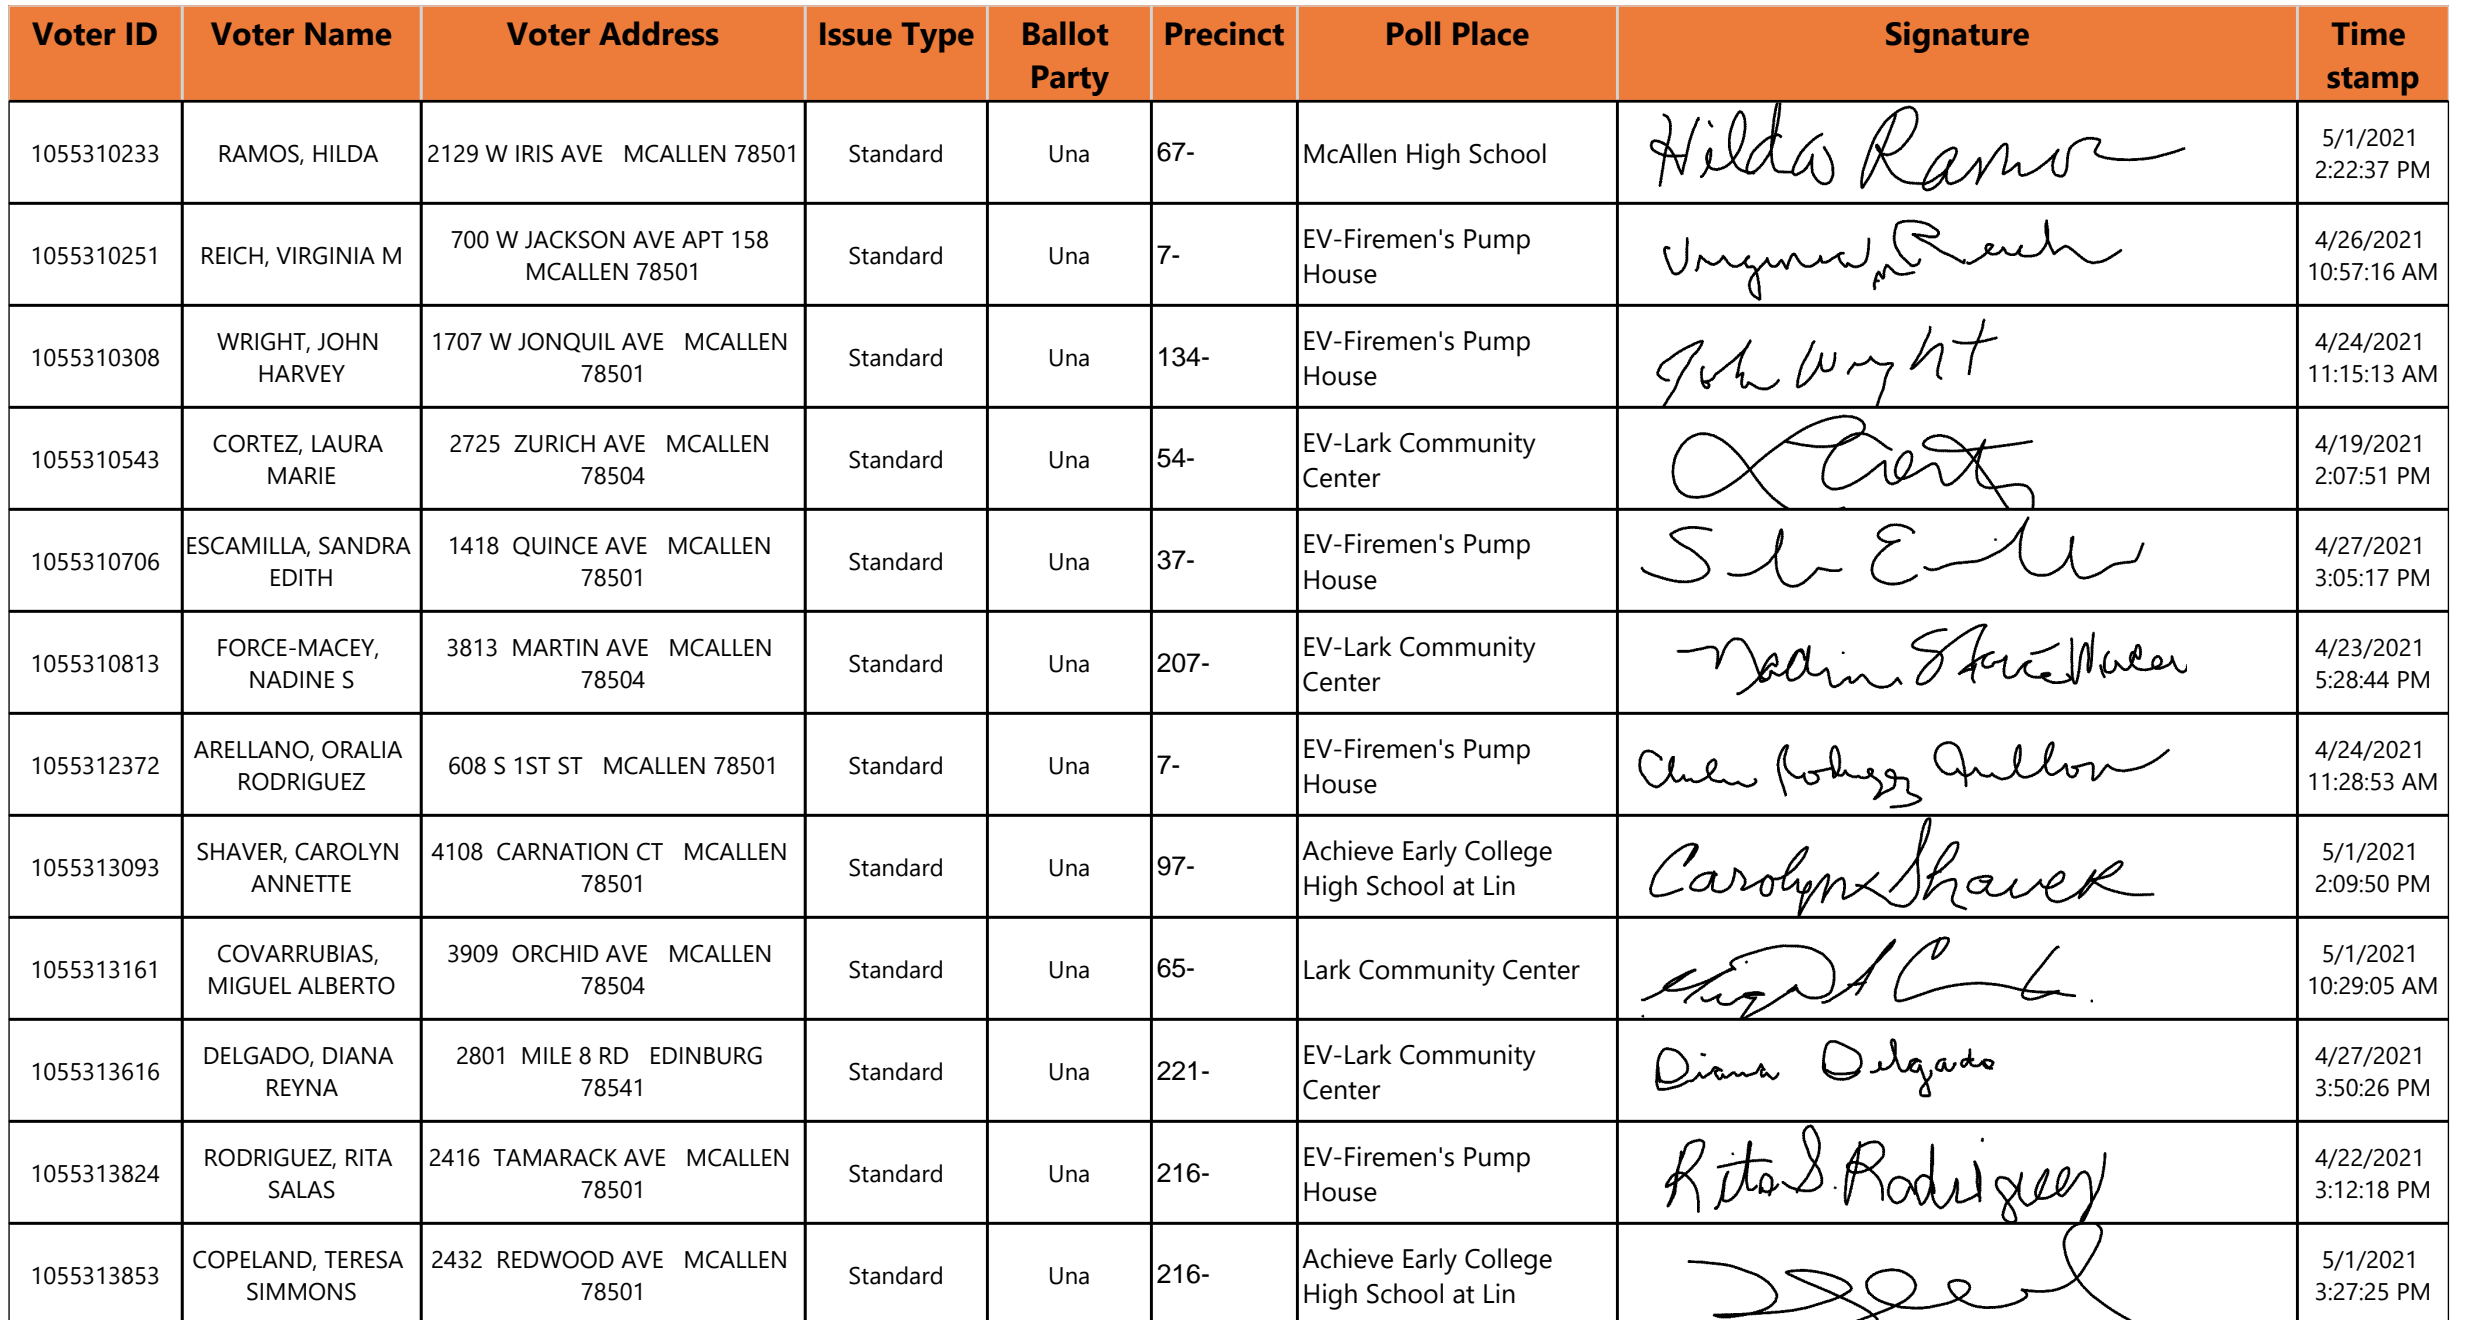 Voter ID Voter Name Voter Address Issue Type Ballot Party Precinct Poll Place Signature Time stamp
1055310233 RAMOS, HILDA 2129 W IRIS AVE MCALLEN 78501 Standard Una 67- McAllen High School Hilda Ramos 5/1/2021 2:22:37 PM
1055310251 REICH, VIRGINIA M 700 W JACKSON AVE APT 158 MCALLEN 78501 Standard Una 7- EV-Firemen's Pump House Virginia M Reich 4/26/2021 10:57:16 AM
1055310308 WRIGHT, JOHN HARVEY 1707 W JONQUIL AVE MCALLEN 78501 Standard Una 134- EV-Firemen's Pump House John Wright 4/24/2021 11:15:13 AM
1055310543 CORTEZ, LAURA MARIE 2725 ZURICH AVE MCALLEN 78504 Standard Una 54- EV-Lark Community Center 4/19/2021 2:07:51 PM
1055310706 ESCAMILLA, SANDRA EDITH 1418 QUINCE AVE MCALLEN 78501 Standard Una 37- EV-Firemen's Pump House 4/27/2021 3:05:17 PM
1055310813 FORCE-MACEY, NADINE S 3813 MARTIN AVE MCALLEN 78504 Standard Una 207- EV-Lark Community Center Nadine S Force Macey 4/23/2021 5:28:44 PM
1055312372 ARELLANO, ORALIA RODRIGUEZ 608 S 1ST ST MCALLEN 78501 Standard Una 7- EV-Firemen's Pump House 4/24/2021 11:28:53 AM
1055313093 SHAVER, CAROLYN ANNETTE 4108 CARNATION CT MCALLEN 78501 Standard Una 97- Achieve Early College High School at Lin Carolyn Shaver 5/1/2021 2:09:50 PM
1055313161 COVARRUBIAS, MIGUEL ALBERTO 3909 ORCHID AVE MCALLEN 78504 Standard Una 65- Lark Community Center 5/1/2021 10:29:05 AM
1055313616 DELGADO, DIANA REYNA 2801 MILE 8 RD EDINBURG 78541 Standard Una 221- EV-Lark Community Center Diana Delgado 4/27/2021 3:50:26 PM
1055313824 RODRIGUEZ, RITA SALAS 2416 TAMARACK AVE MCALLEN 78501 Standard Una 216- EV-Firemen's Pump House Rita S. Rodriguez 4/22/2021 3:12:18 PM
1055313853 COPELAND, TERESA SIMMONS 2432 REDWOOD AVE MCALLEN 78501 Standard Una 216- Achieve Early College High School at Lin 5/1/2021 3:27:25 PM